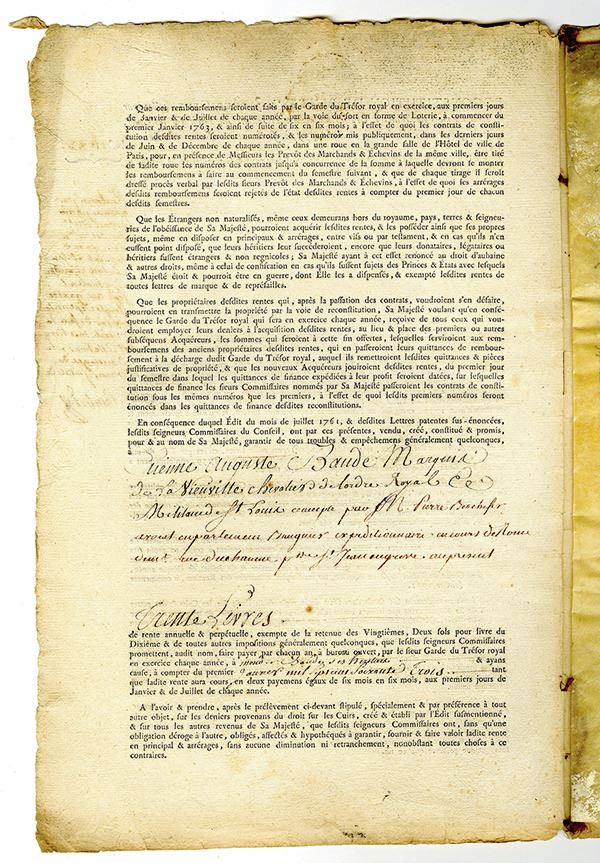 Que ces remboursemens seroient faits par le Garde du Trésor royal en exercice, aux premiers jours
de Janvier & de Juillet de chaque année, par la voie du sort en forme de Loterie, à commencer du
premier Janvier 1763, & ainsi de suite de six en six mois; à l'effet de quoi les contrats de consti-
tution desdites rentes seroient numérotés, & les numéros mis publiquement, dans les derniers jours
de Juin & de Décembre de chaque année, dans une roue en la grande salle de l'Hôtel de ville de
Paris, pour, en présence de Messieurs les Prevôt des Marchands & Echevins de la même ville, être tiré
de ladite roue les numéros des contrats jusqu'à concurrence de la somme à laquelle devront se monter
les remboursemens à faire au commencement du semestre suivant, & que de chaque tirage il seroit
dressé procès verbal par lesdits sieurs Prevôt des Marchands & Echevins, à l'effet de quoi les arrérages
desdits remboursemens seroient rejetés de l'état desdites rentes à compter du premier jour de chacun
desdits semestres.
Que les Étrangers non naturalisés, même ceux demeurans hors du royaume, pays, terres & seigneu-
ries de l'obéissance de Sa Majesté, pourroient acquérir lesdites rentes, & les posséder ainsi que ses propres
sujets, même en disposer en principaux & arrérages, entre vifs ou par testament, & en cas qu'ils n'en
eussent point disposé, que leurs héritiers leur succéderoient, encore que leurs donataires, légataires ou
héritiers fussent étrangers & non regnicoles; Sa Majesté ayant à cet effet renoncé au droit d'aubaine
& autres droits, même à celui de confiscation en cas qu'ils fussent sujets des Princes & États avec lesquels
Sa Majesté étoit & pourroit être en guerre, dont Elle les a dispensés, & exempté lesdites rentes de
toutes lettres de marque & de représailles.
Que les propriétaires desdites rentes qui, après la passation des contrats, voudroient s'en défaire,
pourroient en transmettre la propriété par la voie de reconstitution, Sa Majesté voulant qu'en consé-
quence le Garde du Trésor royal qui sera en exercice chaque année, reçoive de tous ceux qui vou-
droient employer leurs deniers à l'acquisition desdites rentes, au lieu & place des premiers ou autres
subséquens Acquéreurs, les sommes qui seroient à cette fin offertes, lesquelles serviroient aux rem-
boursemens des anciens propriétaires desdites rentes, qui en passeroient leurs quittances de rembour-
sement à la décharge dudit Garde du Trésor royal, auquel ils remettroient lesdites quittances & pièces
justificatives de propriété, & que les nouveaux Acquéreurs jouiroient desdites rentes, du premier jour
du semestre dans lequel les quittances de finance expédiées à leur profit seroient datées, sur lesquelles
quittances de finance les sieurs Commissaires nommés par Sa Majesté passeroient les contrats de consti-
tution sous les mêmes numéros que les premiers, à l'effet de quoi lesdits premiers numéros seront
énoncés dans les quittances de finance desdites reconstitutions.
En conséquence duquel Édit du mois de juillet 1761, & desdites Lettres patentes sus-énoncées,
lesdits seigneurs Commissaires du Conseil, ont par ces présentes, vendu, créé, constitué & promis,
pour & au nom de Sa Majesté, garantir de tous troubles & empêchemens généralement quelconques,
Etienne Auguste Baude Marquis
de La Vieuville Chevalier de lordre Royal Et
Militaire de St Louis accepté par M. Pierre
avocat en parlement Banquier expéditionnaire en cours de Rome
demt. rue du chaume psse. St. Jean en greve a ce present
Trente Livres
de rente annuelle & perpétuelle, exempte de la retenue des Vingtièmes, Deux sols pour livre du
Dixième & de toutes autres impositions généralement quelconques, que lesdits seigneurs Commissaires
promettent, audit nom, faire payer par chacun an, à bureau ouvert, par le sieur Garde du Trésor royal
en exercice chaque année, à mond. S. Baude, ses héritiers & ayans
cause, à compter du premier Janvier mil sept cens soixante Trois tant
que ladite rente aura cours, en deux payemens égaux de six mois en six mois, aux premiers jours de
Janvier & de Juillet de chaque année.
A l'avoir & prendre, après le prélèvement ci-devant stipulé, spécialement & par préférence à tout
autre objet, sur les deniers provenans du droit sur les Cuirs, créé & établi par l'Édit susmentionné,
& sur tous les autres revenus de Sa Majesté, que lesdits seigneurs Commissaires ont, sans qu'une
obligation déroge à l'autre, obligés, affectés & hypothéqués à garantir, fournir & faire valoir ladite rente
en principal & arrérages, sans aucune diminution ni retranchement, nonobstant toutes choses à ce
contraires.